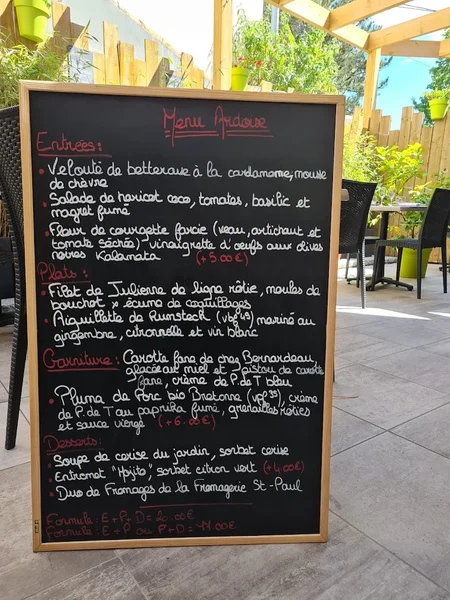 Menu Ardoise
Entrées:
• Velouté de betterave à la cardamome, mousse
de chèvre
• Salade de haricot coco, tomates, basilic et
magret fumé
• Fleur de courgette farcie (veau, artichaut et
tomate séchée) vinaigrette d'oeufs aux olives
noires Kalamata (+5.00€)
Plats:
• Filet de Julienne de ligne rôtie, moules de
bouchot & écume de coquillages
• Aiguillette de Rumsteck mariné au
gingembre, citronnelle et vin blanc
Garniture: Carotte fane de chez Bernardeau,
glacée au miel et pistou de carotte
fane, crème de P. de T bleu
• Pluma de Porc bio Bretonne, crème
de P. de T au paprika fumé, grenailles rôties
et sauce vierge (+6.00€)
Desserts:
• Soupe de cerise du jardin, sorbet cerise
• Entremet "Mojito", sorbet citron vert (+4.00€)
• Duo de Fromages de la Fromagerie St-Paul
Formule: E+P+D = 20.00€
Formule: E+P ou P+D =